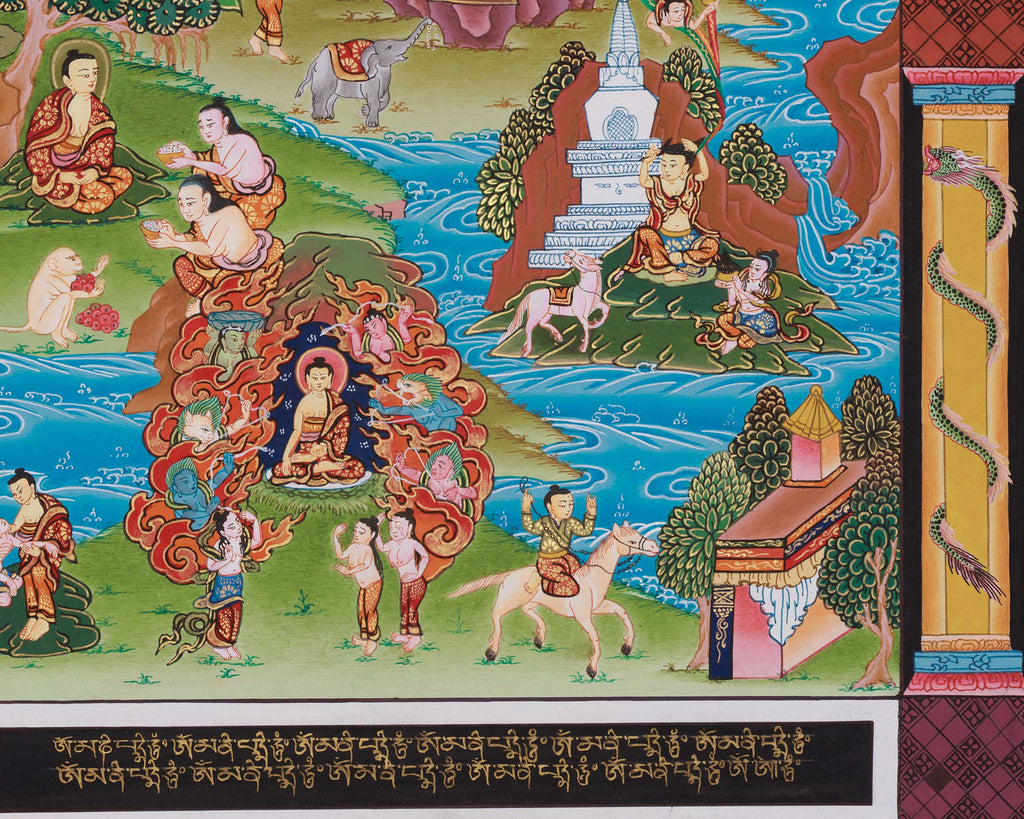 ཨོཾ་མ་ཎི་པདྨེ་ཧཱུྃ༔ ཨོཾ་མ་ཎི་པདྨེ་ཧཱུྃ༔ ཨོཾ་མ་ཎི་པདྨེ་ཧཱུྃ༔ ཨོཾ་མ་ཎི་པདྨེ་ཧཱུྃ༔ ཨོཾ་མ་ཎི་པདྨེ་ཧཱུྃ༔ ཨོཾ་མ་ཎི་པདྨེ་ཧཱུྃ༔
ཨོཾ་མ་ཎི་པདྨེ་ཧཱུྃ༔ ཨོཾ་མ་ཎི་པདྨེ་ཧཱུྃ༔ ཨོཾ་མ་ཎི་པདྨེ་ཧཱུྃ༔ ཨོཾ་མ་ཎི་པདྨེ་ཧཱུྃ༔ ཨོཾ་མ་ཎི་པདྨེ་ཧཱུྃ༔ ཨོཾ་ཨཱཿ་ཧཱུྃ༔